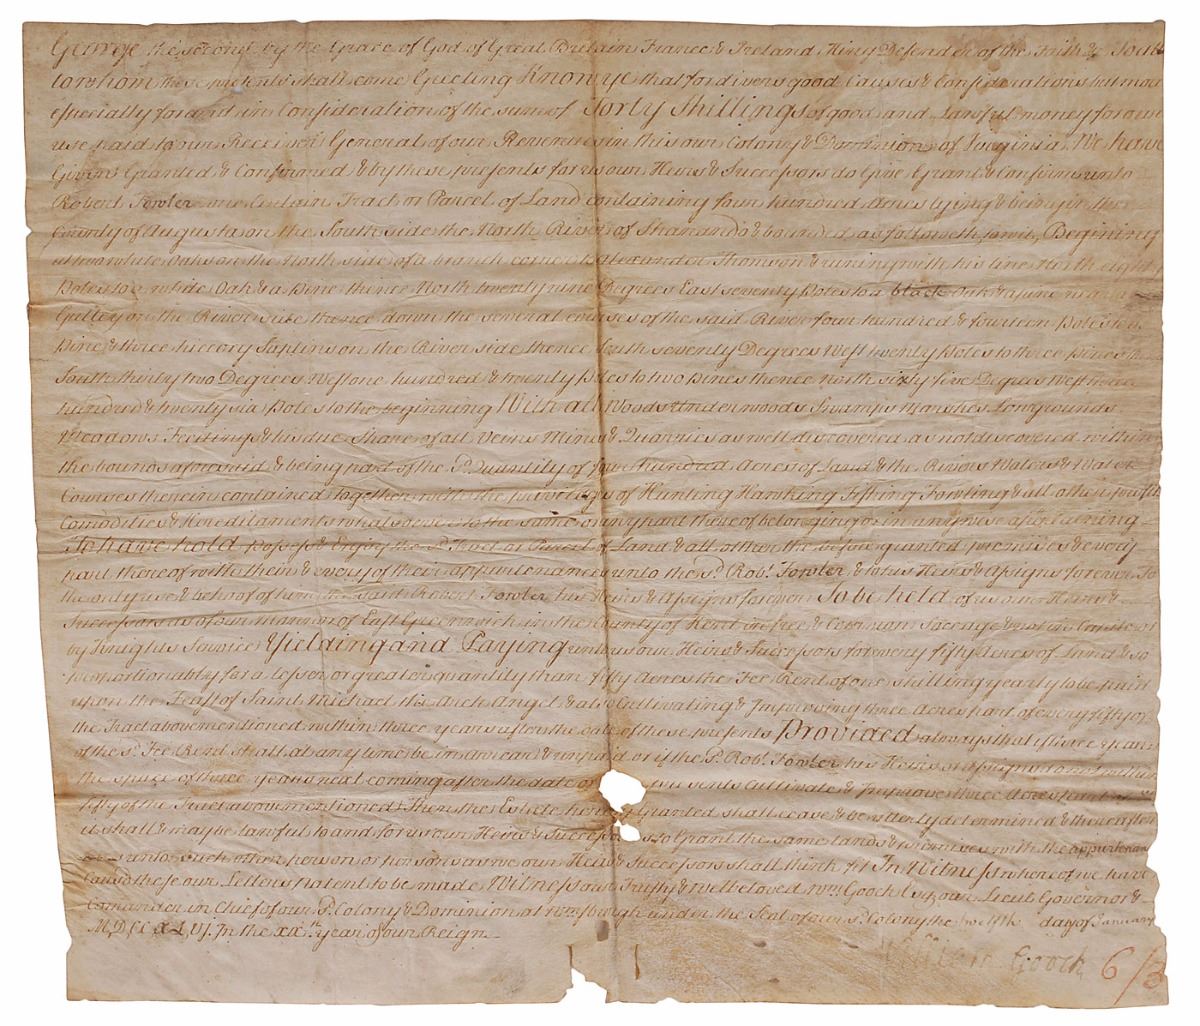 George the second by the Grace of God of Great Britain France & Ireland King Defender of the Faith &c To all
to whom these presents shall come Greeting Know ye that for divers good Causes & Considerations but more
especially for and in Consideration of the sum of Forty Shillings of good and Lawful money for our
use paid to our Receiver General of our Revenues in this our Colony & Dominion of Virginia We have
Given Granted & Confirmed & by these presents for us our Heirs & Successors do Give Grant & Confirm unto
Robert Fowler one Certain Tract or Parcel of Land containing four hundred Acres lying & being in the
County of Augusta on the South side the North River of Shanando & bounded as followeth to wit, Begining
at two white Oaks on the North side of a branch corner to Alexander Thomson & runing with his line North eighty
Poles to a white Oak & a Pine thence North twenty nine Degrees East seventy Poles to a black Oak & a pine near a
Gulley on the River side thence down the several courses of the said River four hundred & fourteen Poles to a
Pine & three hiccory Saplins on the River side thence South seventy Degrees West twenty Poles to three Pines thence
South thirty two Degrees West one hundred & twenty Poles to two Pines thence north sixty five Degrees West
hundred & twenty six Poles to the beginning With all Woods Underwoods Swamps Marshes Lowgrounds
Meadows Feedings & his due Share of all Veins Mines & Quarries as well discovered as not discovered within
the bounds aforesaid & being part of the sd. Quantity of four hundred Acres of Land & the Rivers Waters & Water
Courses therein contained together with the privileges of Hunting Hawking Fishing Fowling & all other profits
Comodities & Hereditaments whatsoever to the same or any part thereof belonging or in any wise apertaining
To have hold Possess & Enjoy the sd. Tract or Parcel of Land & all other the before granted premises & every
part thereof with their & every of their appurtenances unto the sd. Robt. Fowler & to his Heirs & Assigns forever To
the only use & behoof of him the said Robert Fowler his Heirs & Assigns forever To be held of us our Heirs &
Successors as of our mannor of East Greenwich in the County of Kent in free & Common Soccage & not in Capite or
by Knights Service Yielding and Paying unto us our Heirs & Successors for every fifty Acres of Land & so
proportionably for a lesser or greater quantity than fifty Acres the Fee Rent of one shilling yearly to be paid
upon the Feast of Saint Michael the Arch Angel & also Cultivating & Improving three Acres part of every fifty of
the Tract abovementioned within three years after the date of these presents Provided always that if three years
of the sd. Fee Rent shall at any time be in arrear & unpaid or if the sd. Robt. Fowler his Heirs or Assigns do not within
the space of three years next coming after the date of presents Cultivate & Improve three Acres part
fifty of the Tract abovementioned Then the Estate hereby Granted shall cease & be utterly determined & thereafter
it shall & may be lawful to and for us our Heirs & Successors to Grant the same Lands & premises with the appurtenan
unto such other person or persons as we our Heirs & Successors shall think fit In Witness whereof we have
Caused these our Letters Patent to be made Witness our Trusty & Welbeloved Wm. Gooch Esqr. our Lieut Governor &
Comander in Chief of our sd. Colony & Dominion at Wmsburgh under the Seal of our sd. Colony the twelfth day of January
M,DCCXLVI. In the XXth. year of our Reign
William Gooch 6/3